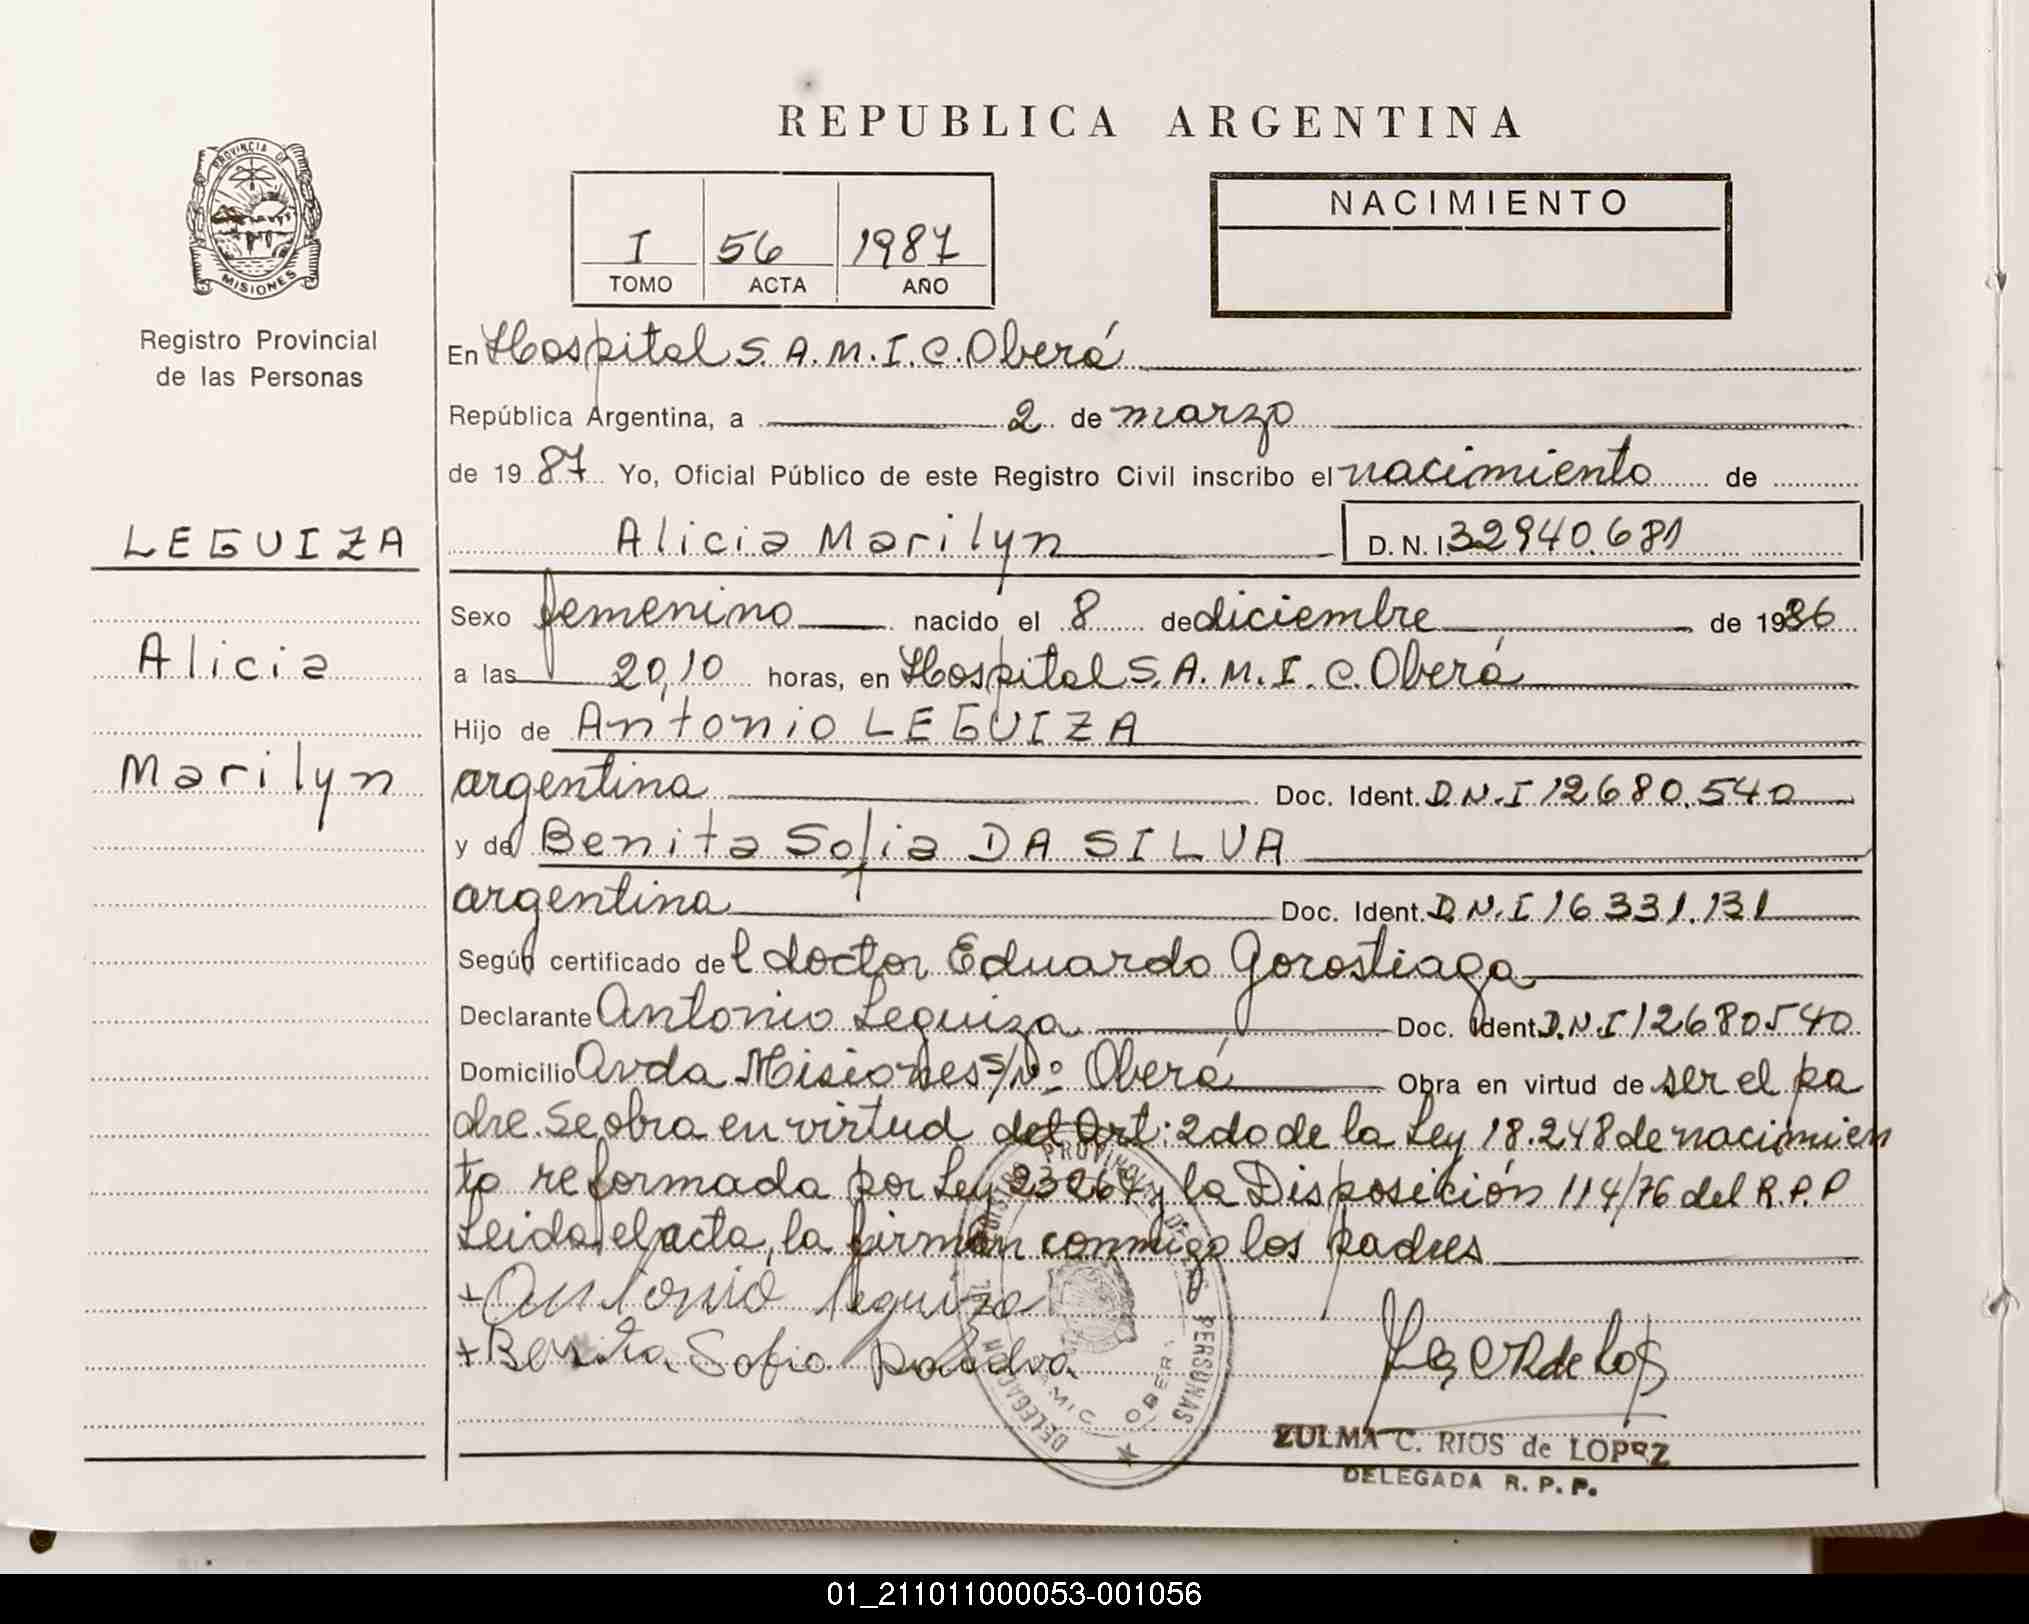 REPUBLICA ARGENTINA
PROVINCIA DE
MISIONES
Registro Provincial
de las Personas
LEGUIZA
Alicia
Marilyn
I 56 1987
TOMO ACTA AÑO
NACIMIENTO
En Hospital S.A.M.I.C. Oberá
República Argentina, a 2 de marzo
de 1987 Yo, Oficial Público de este Registro Civil inscribo el nacimiento de
Alicia Marilyn D.N.I. 32940.681
Sexo femenino nacido el 8 de diciembre de 1986
a las 20,10 horas, en Hospital S.A.M.I.C. Oberá
Hijo de Antonio LEGUIZA
argentina Doc. Ident. D.N.I 12680.540
y de Benita Sofia DA SILVA
argentina Doc. Ident. D.N.I 16331.131
Según certificado del doctor Eduardo Gorostiaga
Declarante Antonio Leguiza Doc. Ident. D.N.I 12680540
Domicilio Avda Misiones S/Nº Oberá Obra en virtud de ser el pa
dre. Se obra en virtud del Art: 2do de la Ley 18.248 de nacimien
to reformada por Ley 23264 y la Disposición 114/76 del R.P.P
Leida el acta, la firman conmigo los padres
+ Antonio leguiza
+ Benita Sofia Dasilva
DELEGACION SAMIC OBERA
PROVINCIAL DE LAS PERSONAS
ZULMA C. RIOS de LOPEZ
DELEGADA R. P. P.
01_211011000053-001056